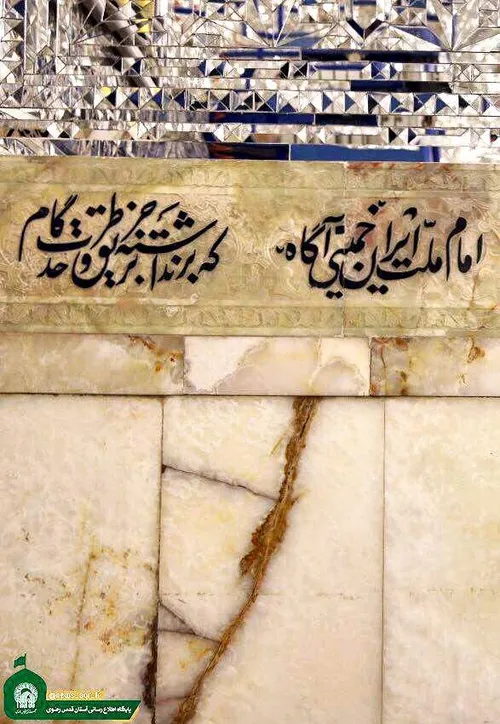 امام ملت ایران خمینی آگاه
که برنداشته جز بر طریق وحدت گام
پایگاه اطلاع رسانی آستان قدس رضوی